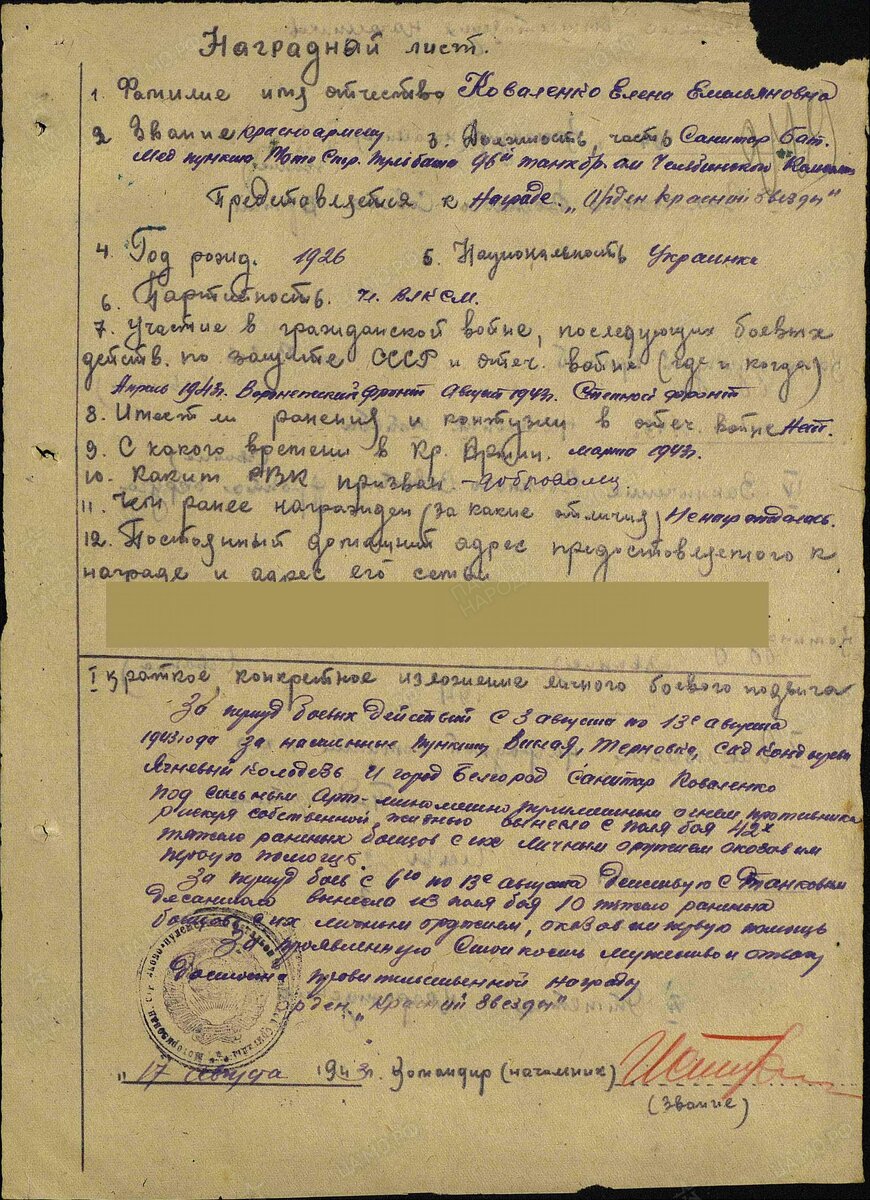 Наградной лист.
1. Фамилие имя отчество Коваленко Елена Емельяновна
2 Звание красноармеец 3. Должность, часть Санитар бат.
Мед пункта Мото Стр. 96й танк бр. им Челябинского
Представляется к награде. „Орден Красной Звезды"
4. Год рожд. 1926 5. Национальность Украинка
6. Партийность. ч. ВЛКСМ.
7. Участие в гражданской войне, последующих боевых
действ. по защите СССР и отеч. войне (где и когда)
Апрель 1943г. Воронежский фронт Август 1943г. Степной фронт
8. Имеет ли ранения и контузии в отеч войне Нет.
9. С какого времени в Кр. Армии. марта 1943г.
10. Каким РВК призван – доброволец
11. Чем ранее награжден (за какие отличия) Ненаграждалась.
12. Постоянный домашний адрес предоставляемого к
награде и адрес его семьи
I Краткое, конкретное изложение личного боевого подвига
За период боевых действий с 3 августа по 13е августа
1943 года за населенные пункты Терновка, сад
Ячневый колодезь и город Белгород санитар Коваленко
под сильным арт-минометно огнем противника
рискуя собственной жизнью вынесла с поля боя 42х
тяжело раненых бойцов с их личным оружием оказав им
первую помощь.
За период боев с 6го по 13е августа действуя с танковым
десантом вынесла из поля боя 10 тяжело раненых
бойцов с их личным оружием, оказав им первую помощь
За проявленную стойкость мужество и отвагу
достойна правительственной награды
Орден „Красной Звезды"
„17 августа 1943г. Командир (начальник)
(звание)